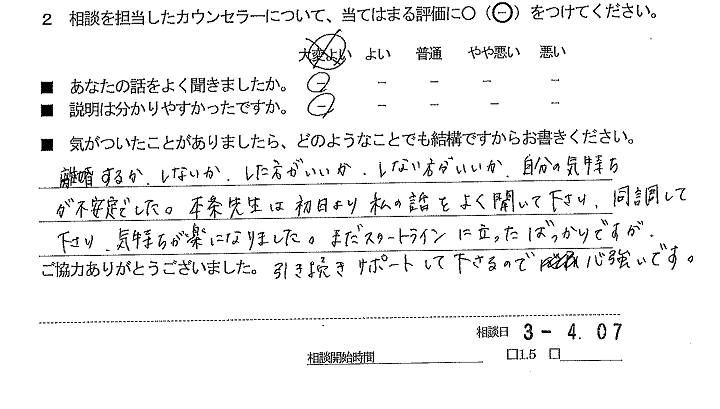 2 相談を担当したカウンセラーについて、当てはまる評価に○（⊖）をつけてください。
大変よい よい 普通 やや悪い 悪い
■ あなたの話をよく聞きましたか。 － － － － －
■ 説明は分かりやすかったですか。 － － － － －
■ 気がついたことがありましたら、どのようなことでも結構ですからお書きください。
離婚するか、しないか、した方がいいか、しない方がいいか、自分の気持ち
が不安定でした。本条先生は初日より私の話をよく聞いて下さり、同調して
下さり、気持ちが楽になりました。まだスタートラインに立ったばっかりですが、
ご協力ありがとうございました。 引き続きサポートして下さるので 心強いです。
相談日 3-4.07
相談開始時間 □1.5 □